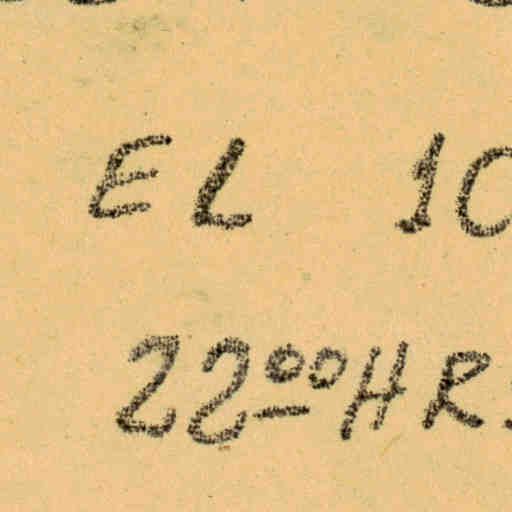 EL 10
22⁰⁰ HR.